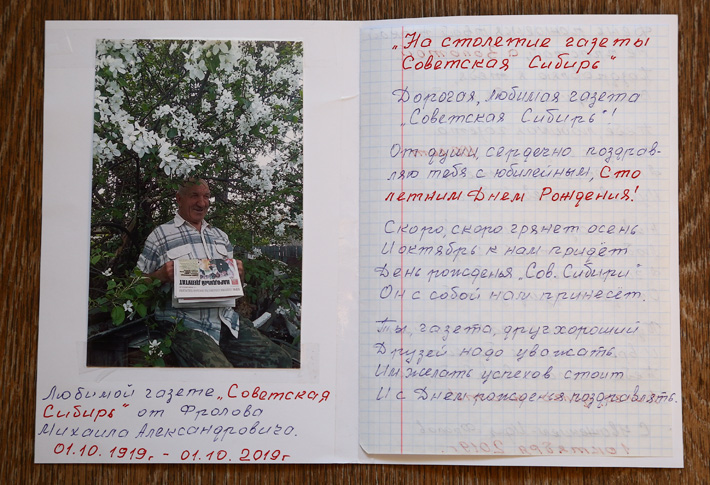 Любимой газете „Советская
Сибирь" от Фролова
Михаила Александровича.
01.10.1919г - 01.10.2019г
„На столетие газеты
Советская Сибирь"
Дорогая, любимая газета
„Советская Сибирь"!
От души, сердечно поздрав-
ляю тебя с юбилейным, Сто
летним Днем Рождения!
Скоро, скоро грянет осень
И октябрь к нам придёт
День рожденья „Сов. Сибири"
Он с собой нам принесёт.
Ты, газета, друг хороший
Друзей надо уважать.
Им желать успехов стоит
И с Днем рожденья поздравлять.